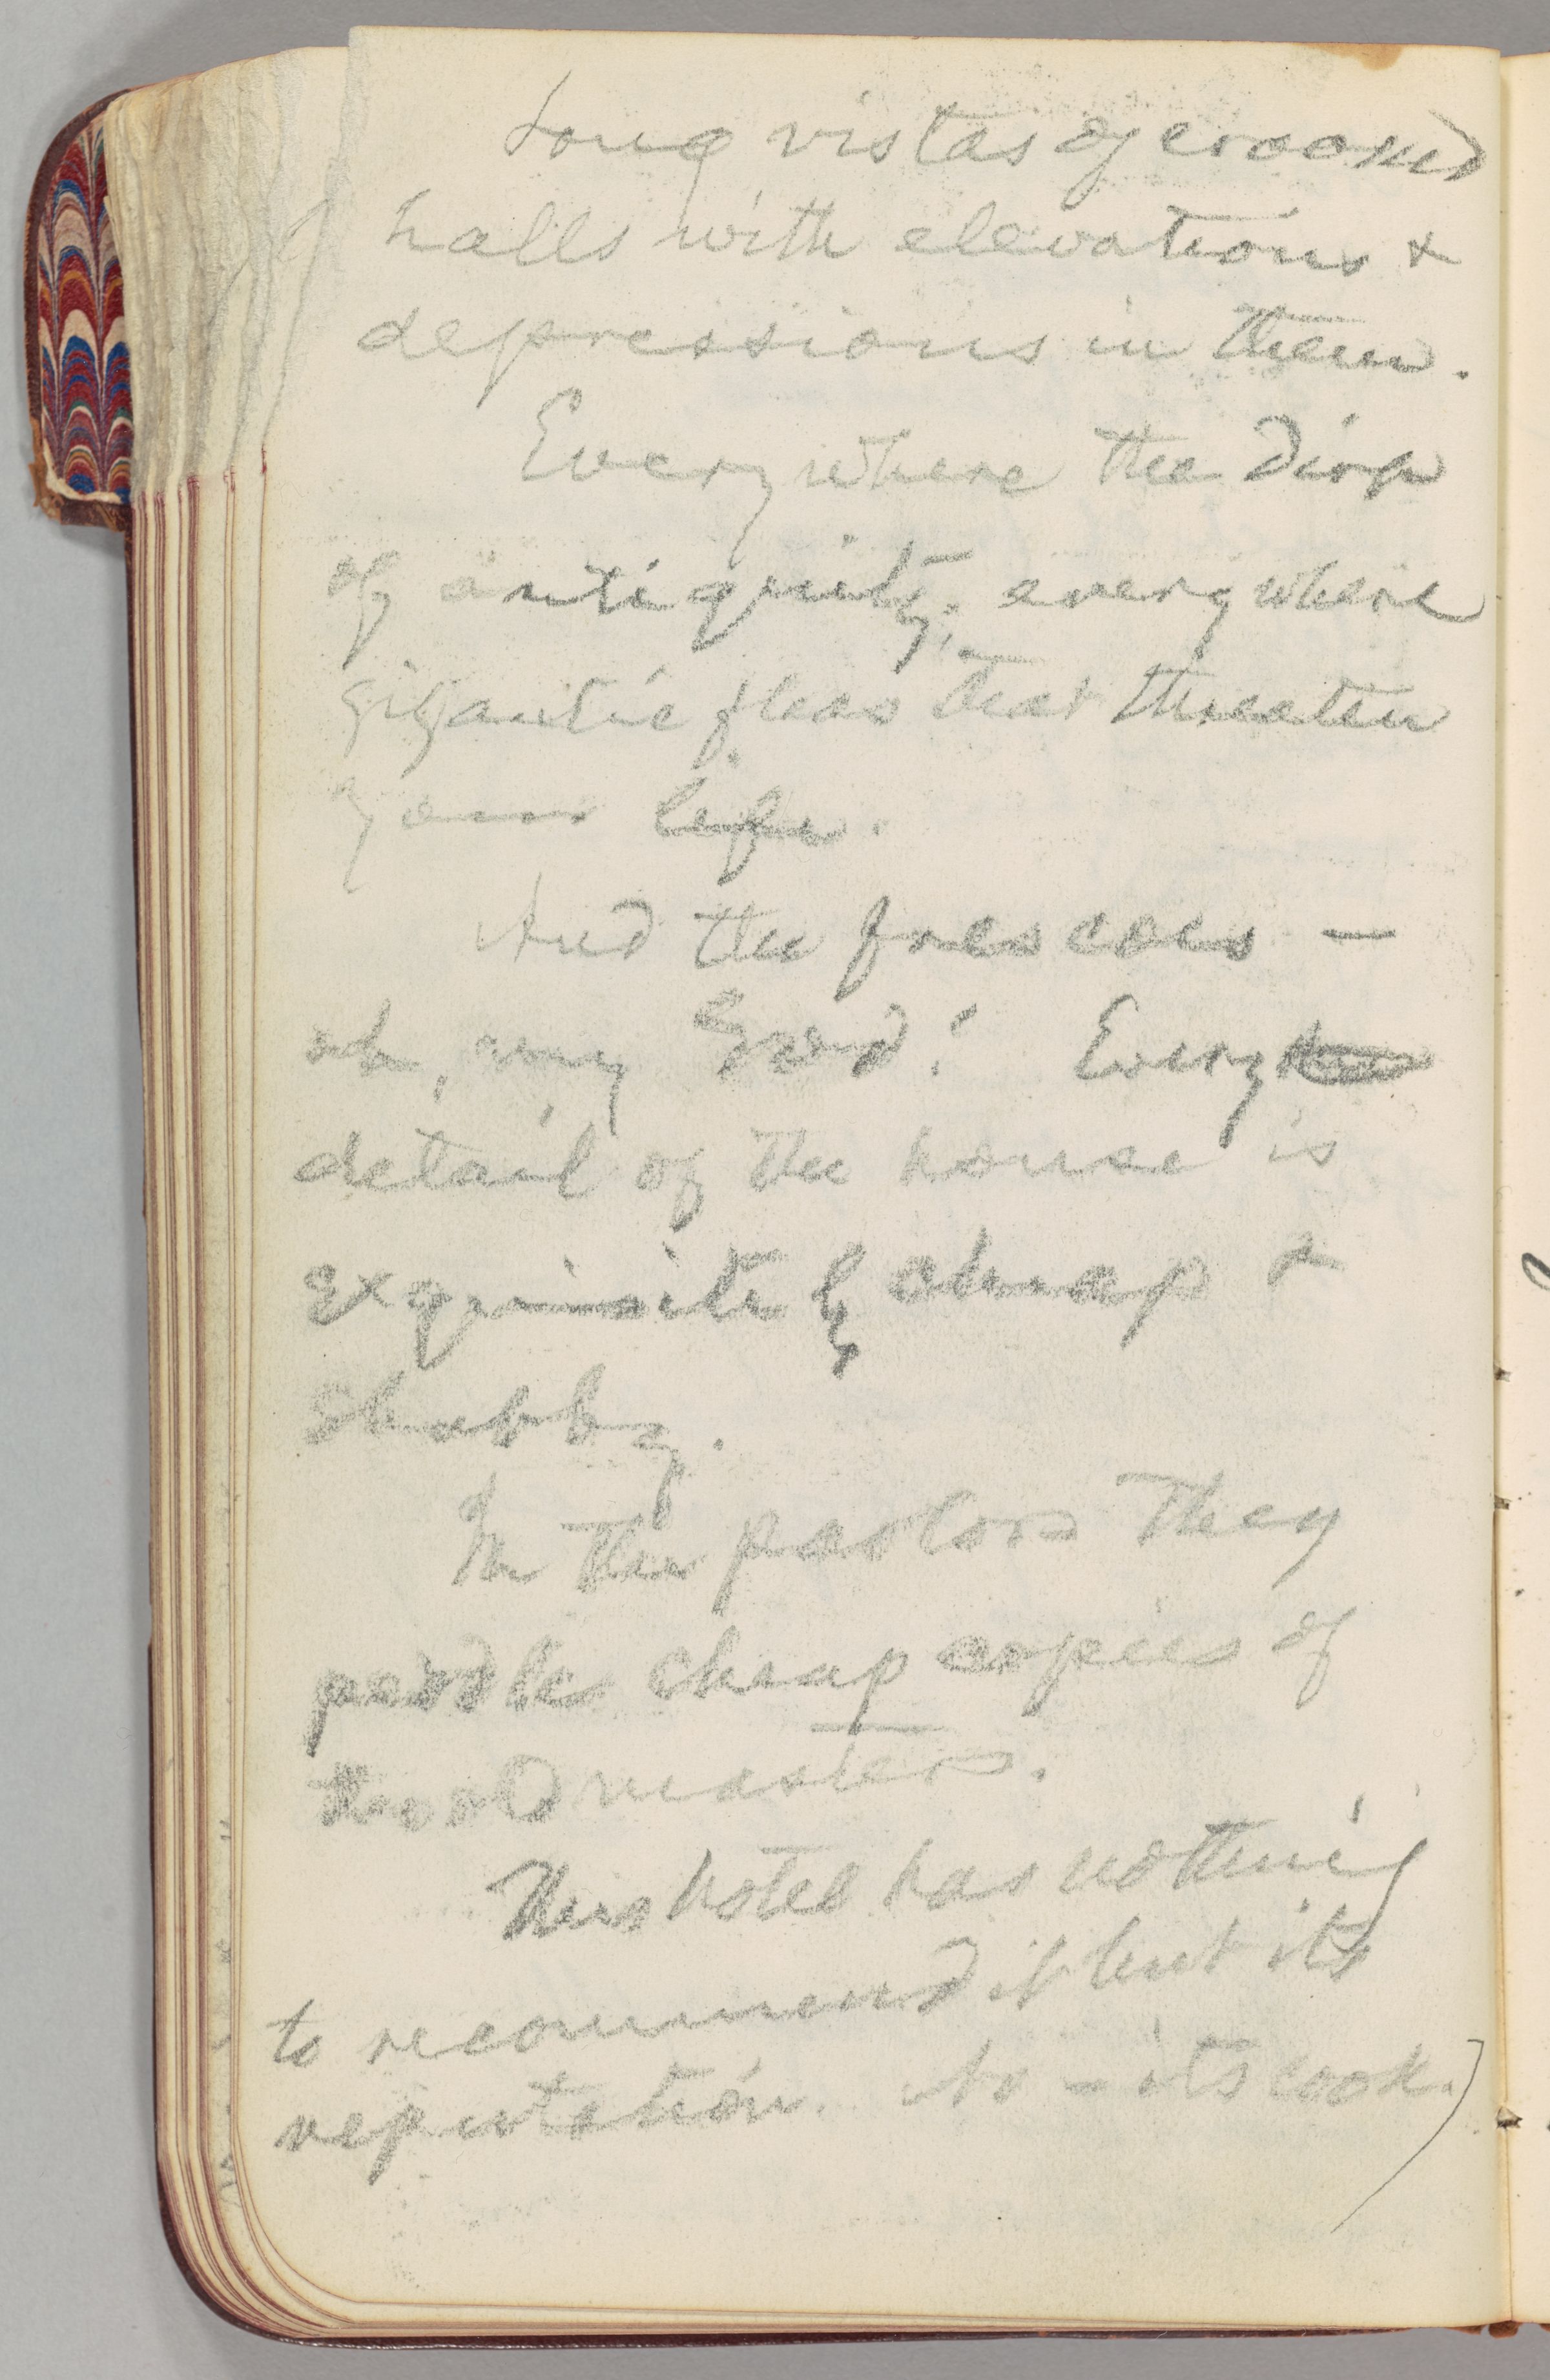 Long vistas of crooked
halls with elevations &
depressions in them.
Everywhere the dirt
of antiquity; everywhere
gigantic fleas that threaten
your life.
And the frescoes —
oh, my God! Every
detail of the house is
exquisitely cheap &
shabby.
In the parlors they
peddle cheap copies of
the old masters.
This hotel has nothing
to recommend it but its
reputation. No — its cook.)